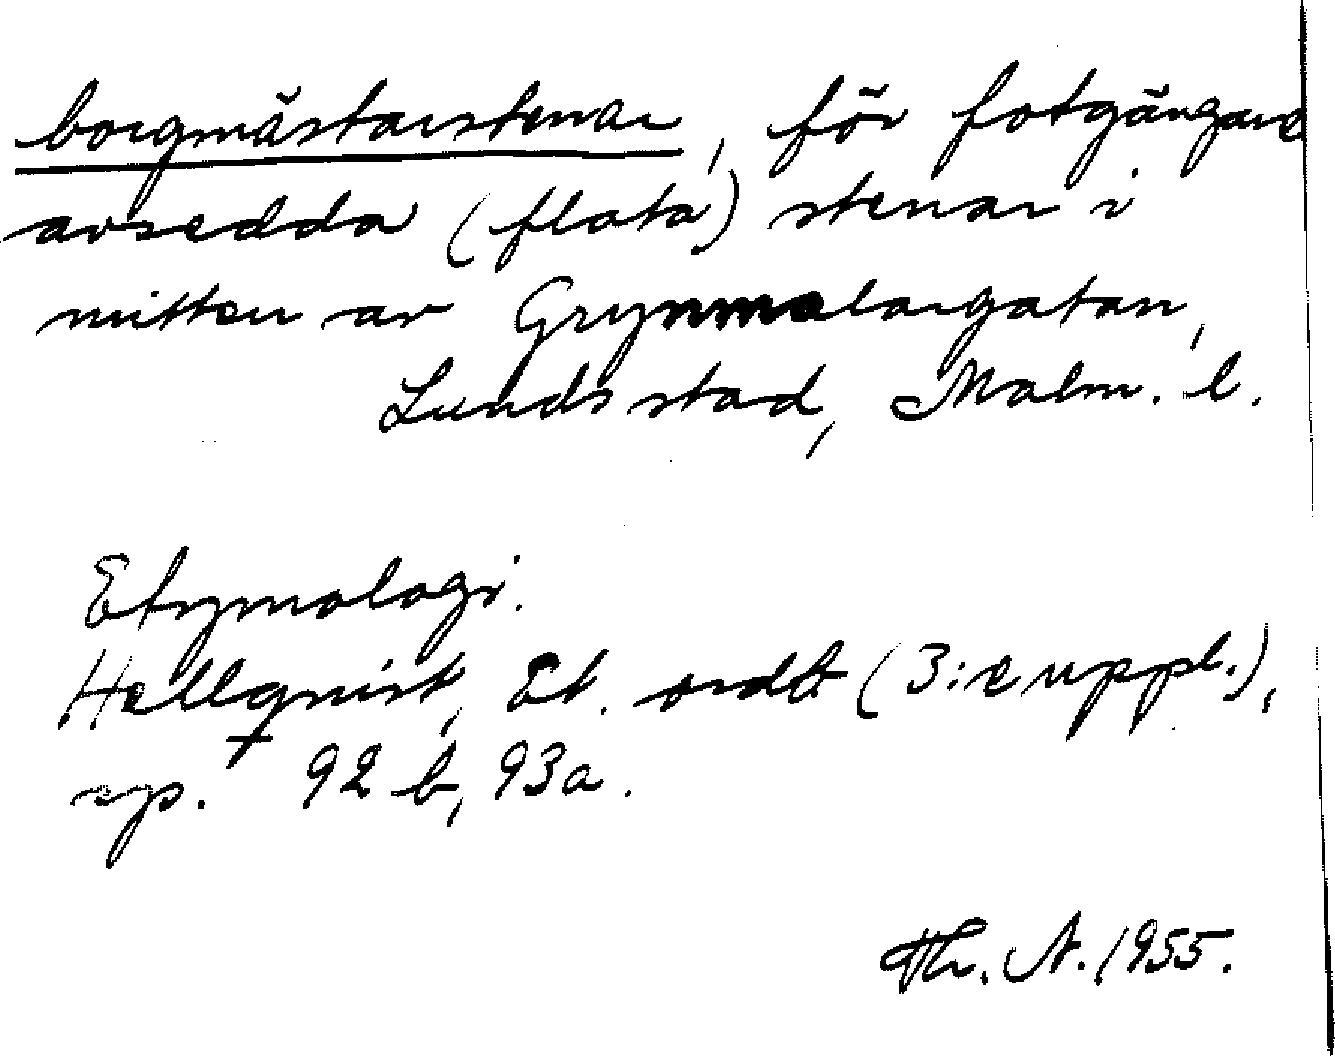 borgmästarstenar, för fotgängare
avsedda (flata) stenar i
mitten av Grynmalargatan,
Lunds stad, Malm. l.
Etymologi.
Hellquist, Et. ordb (3:e uppl.),
sp. 92 b, 93a.
Th. A. 1955.